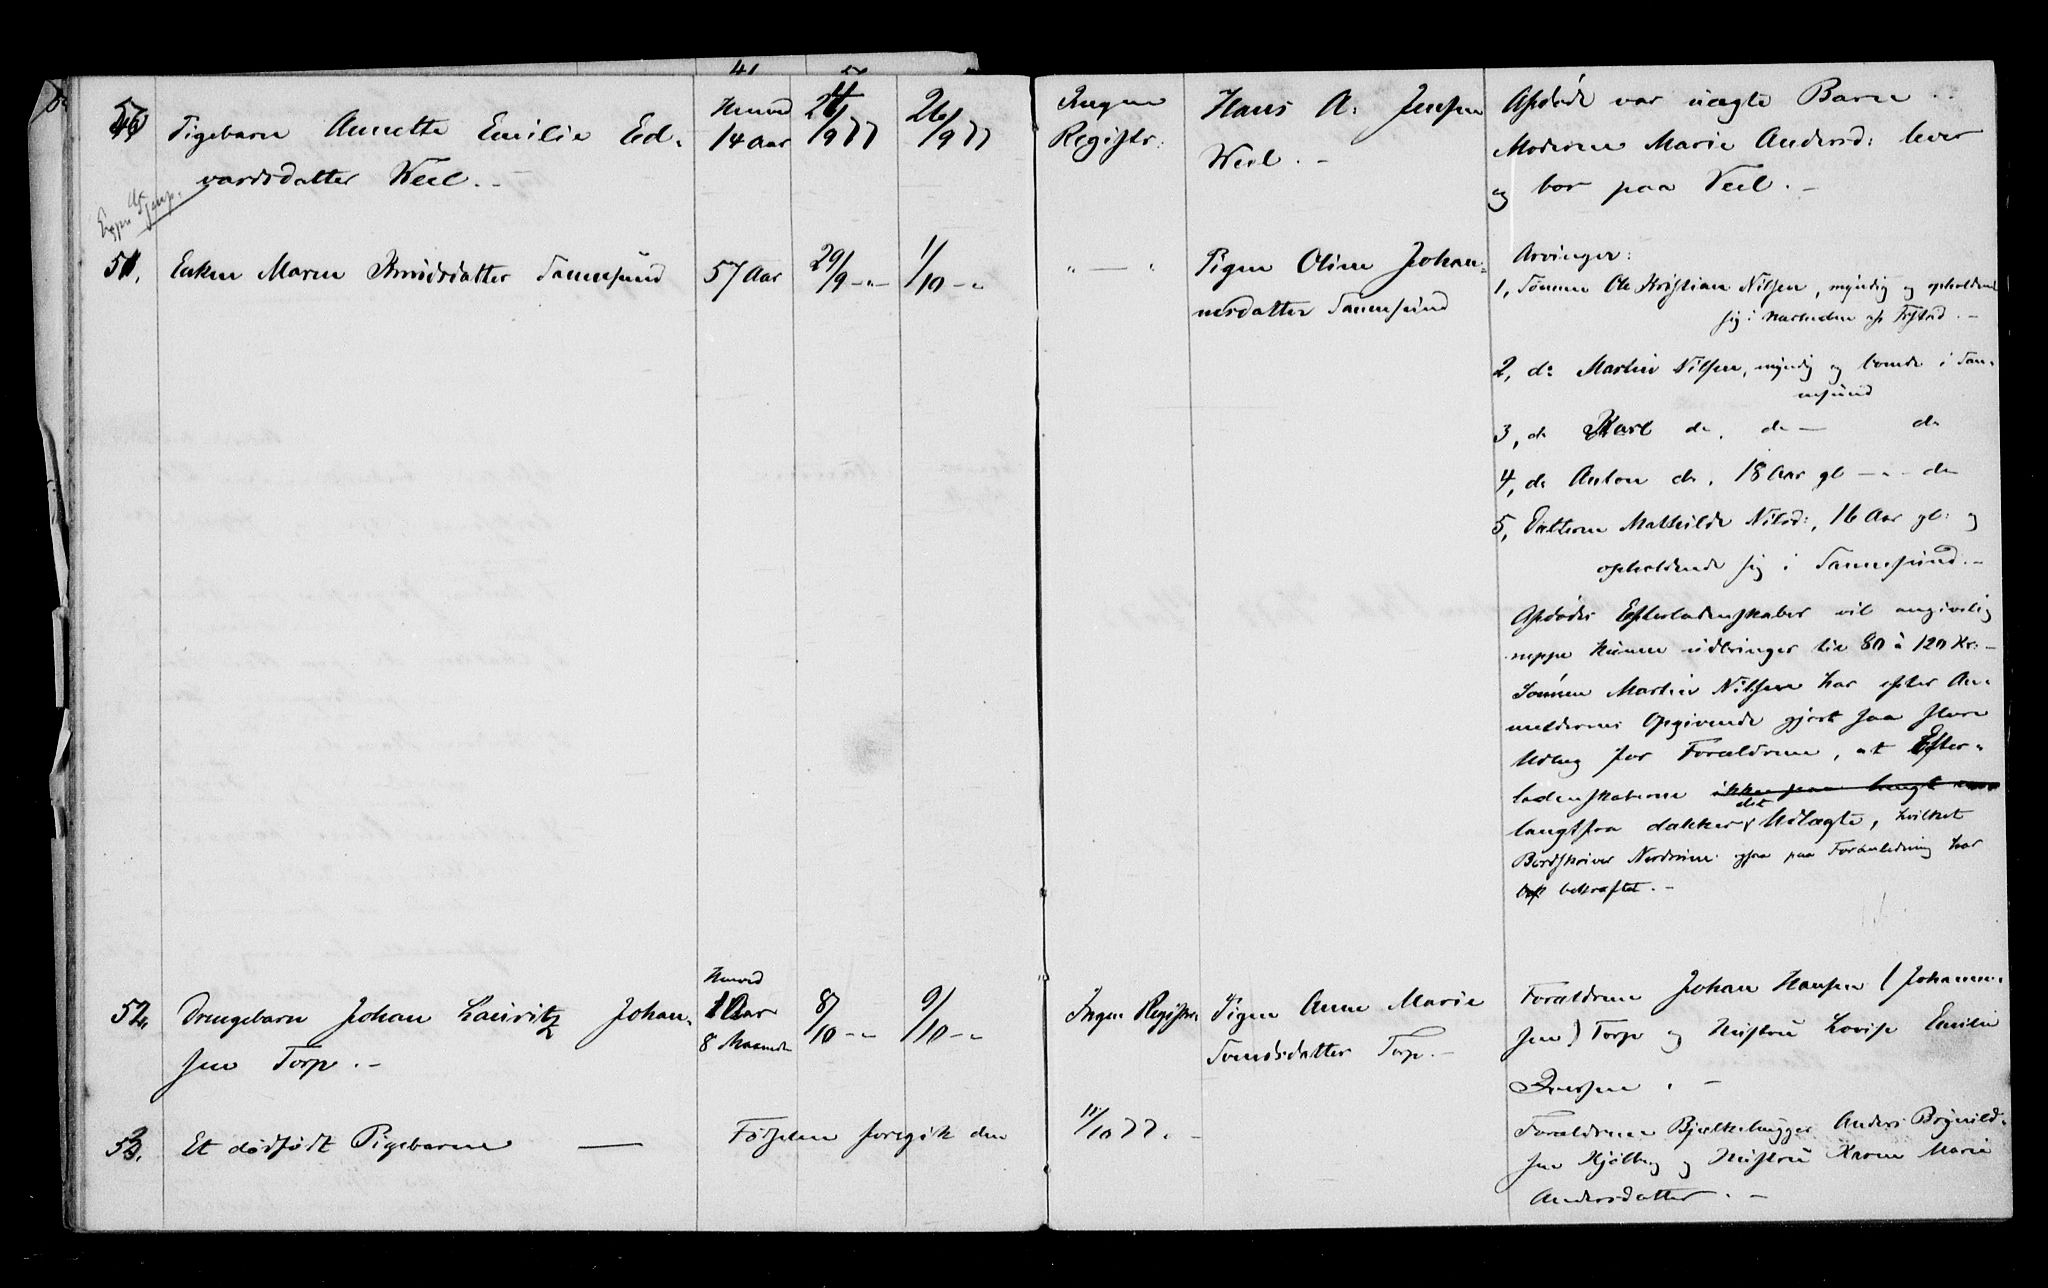 50
Pigebarn Annette Emilie Ed-
vardsdatter Weel. -
Henved
14 Aar
24/9 77
26/9 77
Ingen
Registr:
Hans A: Jensen
Weel. -
Afdøde var uægte Barn
Moderen Marie Andersd: lever
og bor paa Veel. -
51.
Enken Maren Knudsdatter Tannesund
57 Aar
29/9 - " -
1/10 - "
" — "
Pigen Oline Johan-
nesdatter Tannesund
Arvinger:
1, Sønnen Ole Kristian Nilsen, myndig og opholdende
sig i Nærheden af Fr:stad. -
2, do Martin Nilsen, myndig og boende i Tan-
nesund
3, do Karl do, do — do
4, do Anton do, 18 Aar gl - " - do
5, Datteren Mathilde Nilsd:, 16 Aar gl: og
opholdende sig i Tannesund. -
Afdødes Efterladenskaber vil angivelig
neppe kunne udbringes til 80 à 120 Kr: -
Sønnen Martin Nilsen har efter An-
melderens Opgivende gjort saa store
Udlæg for Forældrene, at Efter-
ladenskaberne ikke paa langt nær
langtfra dækker det Udlagte, hvilket
Bordskriver ogsaa paa Foranledning har
bekræftet. -
52.
Drengebarn Johan Lauritz Johan-
sen Torp. -
Henved
1 Aar
8 Maaneder
8/10 - "
9/10 - "
Ingen Registr:
Pigen Anne Marie
Torp. -
Forældrene Johan Hansen (Johann-
sen) Torp og Hustru Lovise Emilie
Jensen. -
53.
Et dødfødt Pigebarn —
Fødselen foregik den
11/10 77. -
Forældrene Bjælkehugger Anders Brynild-
sen Kjølberg og Hustru Karen Marie
Andersdatter. -